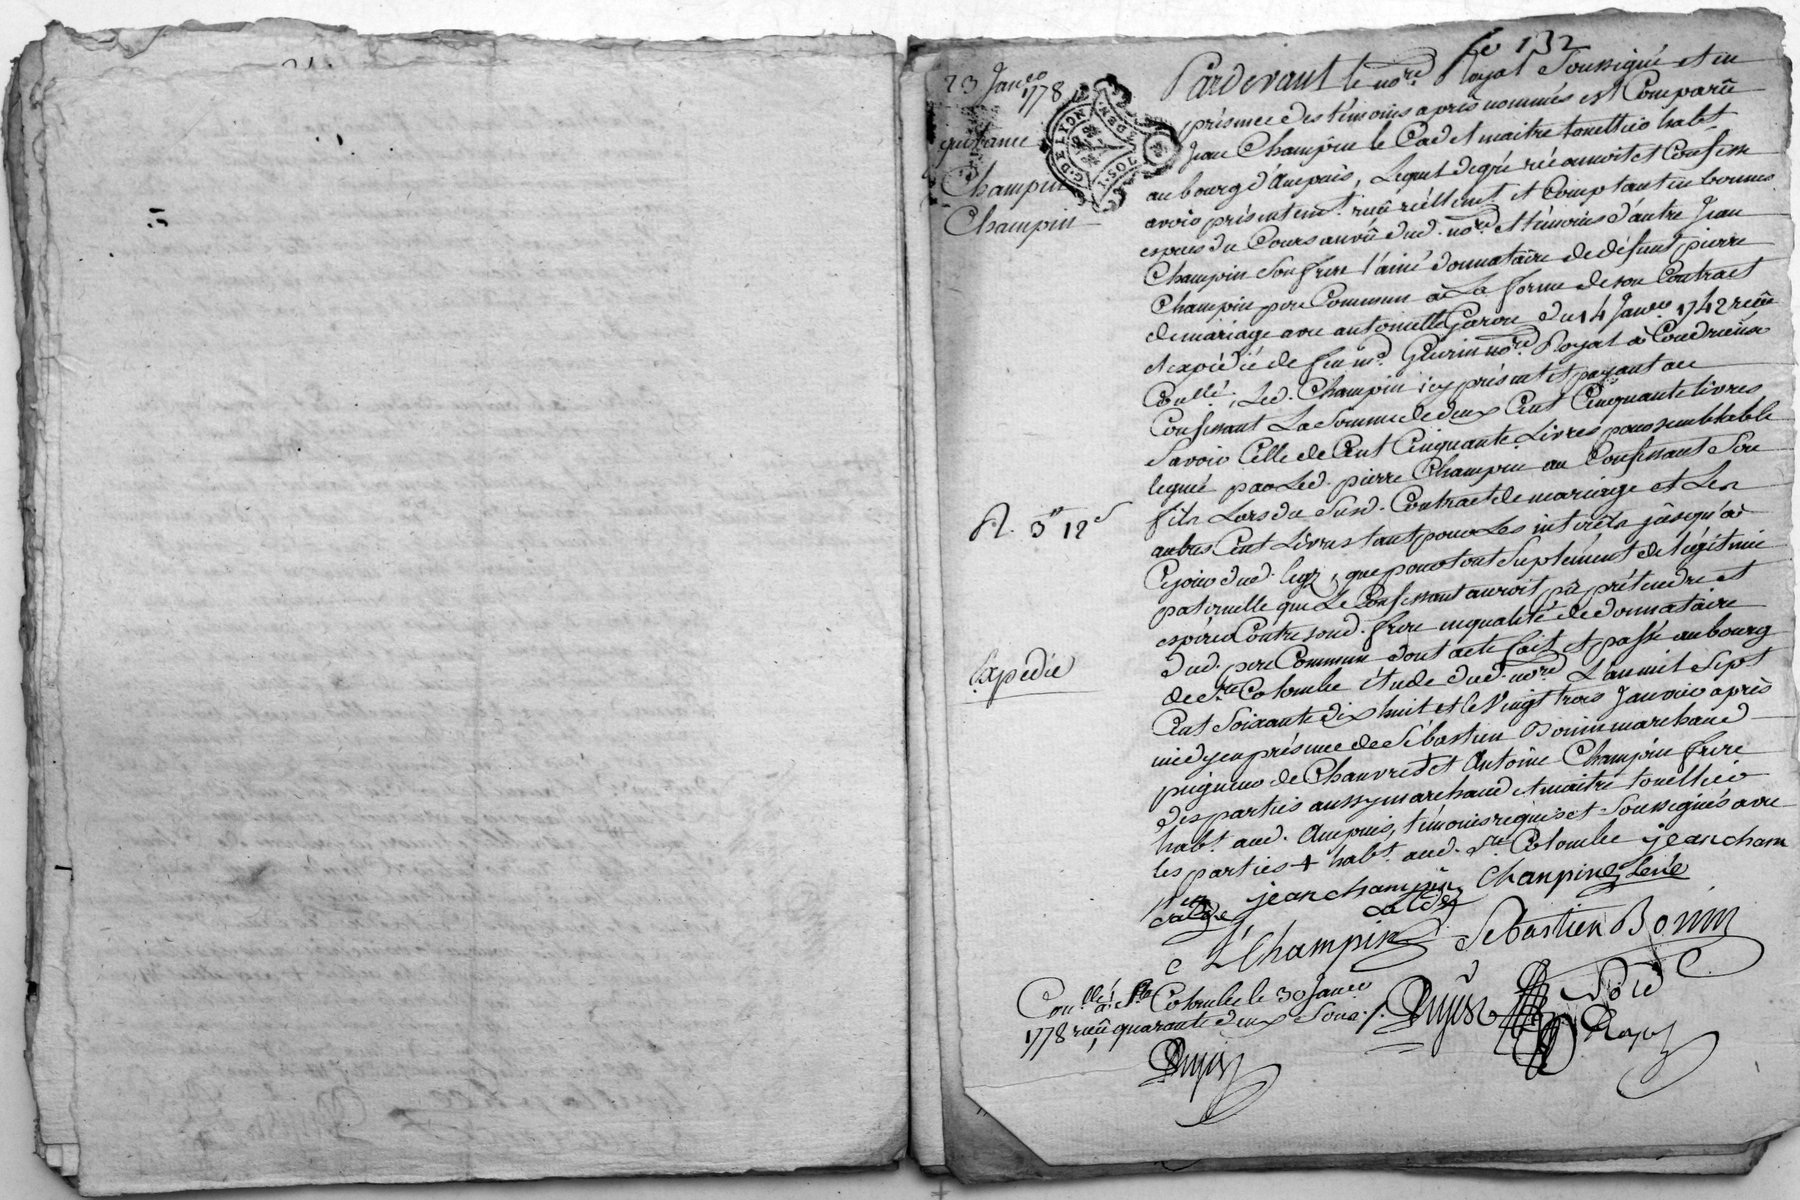 fo 132
23 Janer
1778
quitance
Champin
Champin
G. DE LYON
Pardevant le nore. Royal Soussigné et en
présence des témoins après nommés est Comparû
Jean Champin le Cadet maitre tonellier habt.
au bourg d'Ampuis, Lequel de gré réconnoit et Confesse
avoir présentemt. reçû réellemt. et Comptant en bonnes
espèces du Cours au vû dud. nore. et témoins d'autre Jean
Champin Son frere l'ainé donnataire de défunt pierre
Champin pere Commun à La forme de son Contract
de mariage avec antoinette Garon du 14 Janer. 1742 reçû
et expédié de feu me. Guerin nore. Royal à Condrieu
Conllé, Led. Champin icy présent et payant au
Confessant La Somme de deux Cent Cinquante livres
Savoir Celle de Cent Cinquante Livres pour semblable
leguée par Led. pierre Champin au Confessant Son
fils Lors du Susd. Contract de mariage et Les
autres Cent Livres tant pour Les intérêts jusqu'à
Ce jour dud. legz, que pour tout Suplément de légitime
paternelle que Le Confessant auroit pû prétendre et
espérer Contre sond. frere en qualité de donnataire
dud. pere Commun dont acte fait et passé au bourg
de Ste Colombe étude dud. nore. L'an mil Sept
Cent Soixante dix huit et le Vingt trois Janvier après
midy en présence de Sébastien Bonin marchand
peigneur de Chanvre et Antoine Champin frere
des parties aussy marchand et maitre tonellier
habt. aud. Ampuis, témoins requis et Soussignés avec
les parties + habt. aud. Ste. Colombe jean cham
pin jean champin Champin Lené
cadet
A Champin Sebastien Bonin
R. 3# 12s
Expedié
Conllé à Ste Colombe le 30 Janer
1778 reçû quarante deux Sous ./.